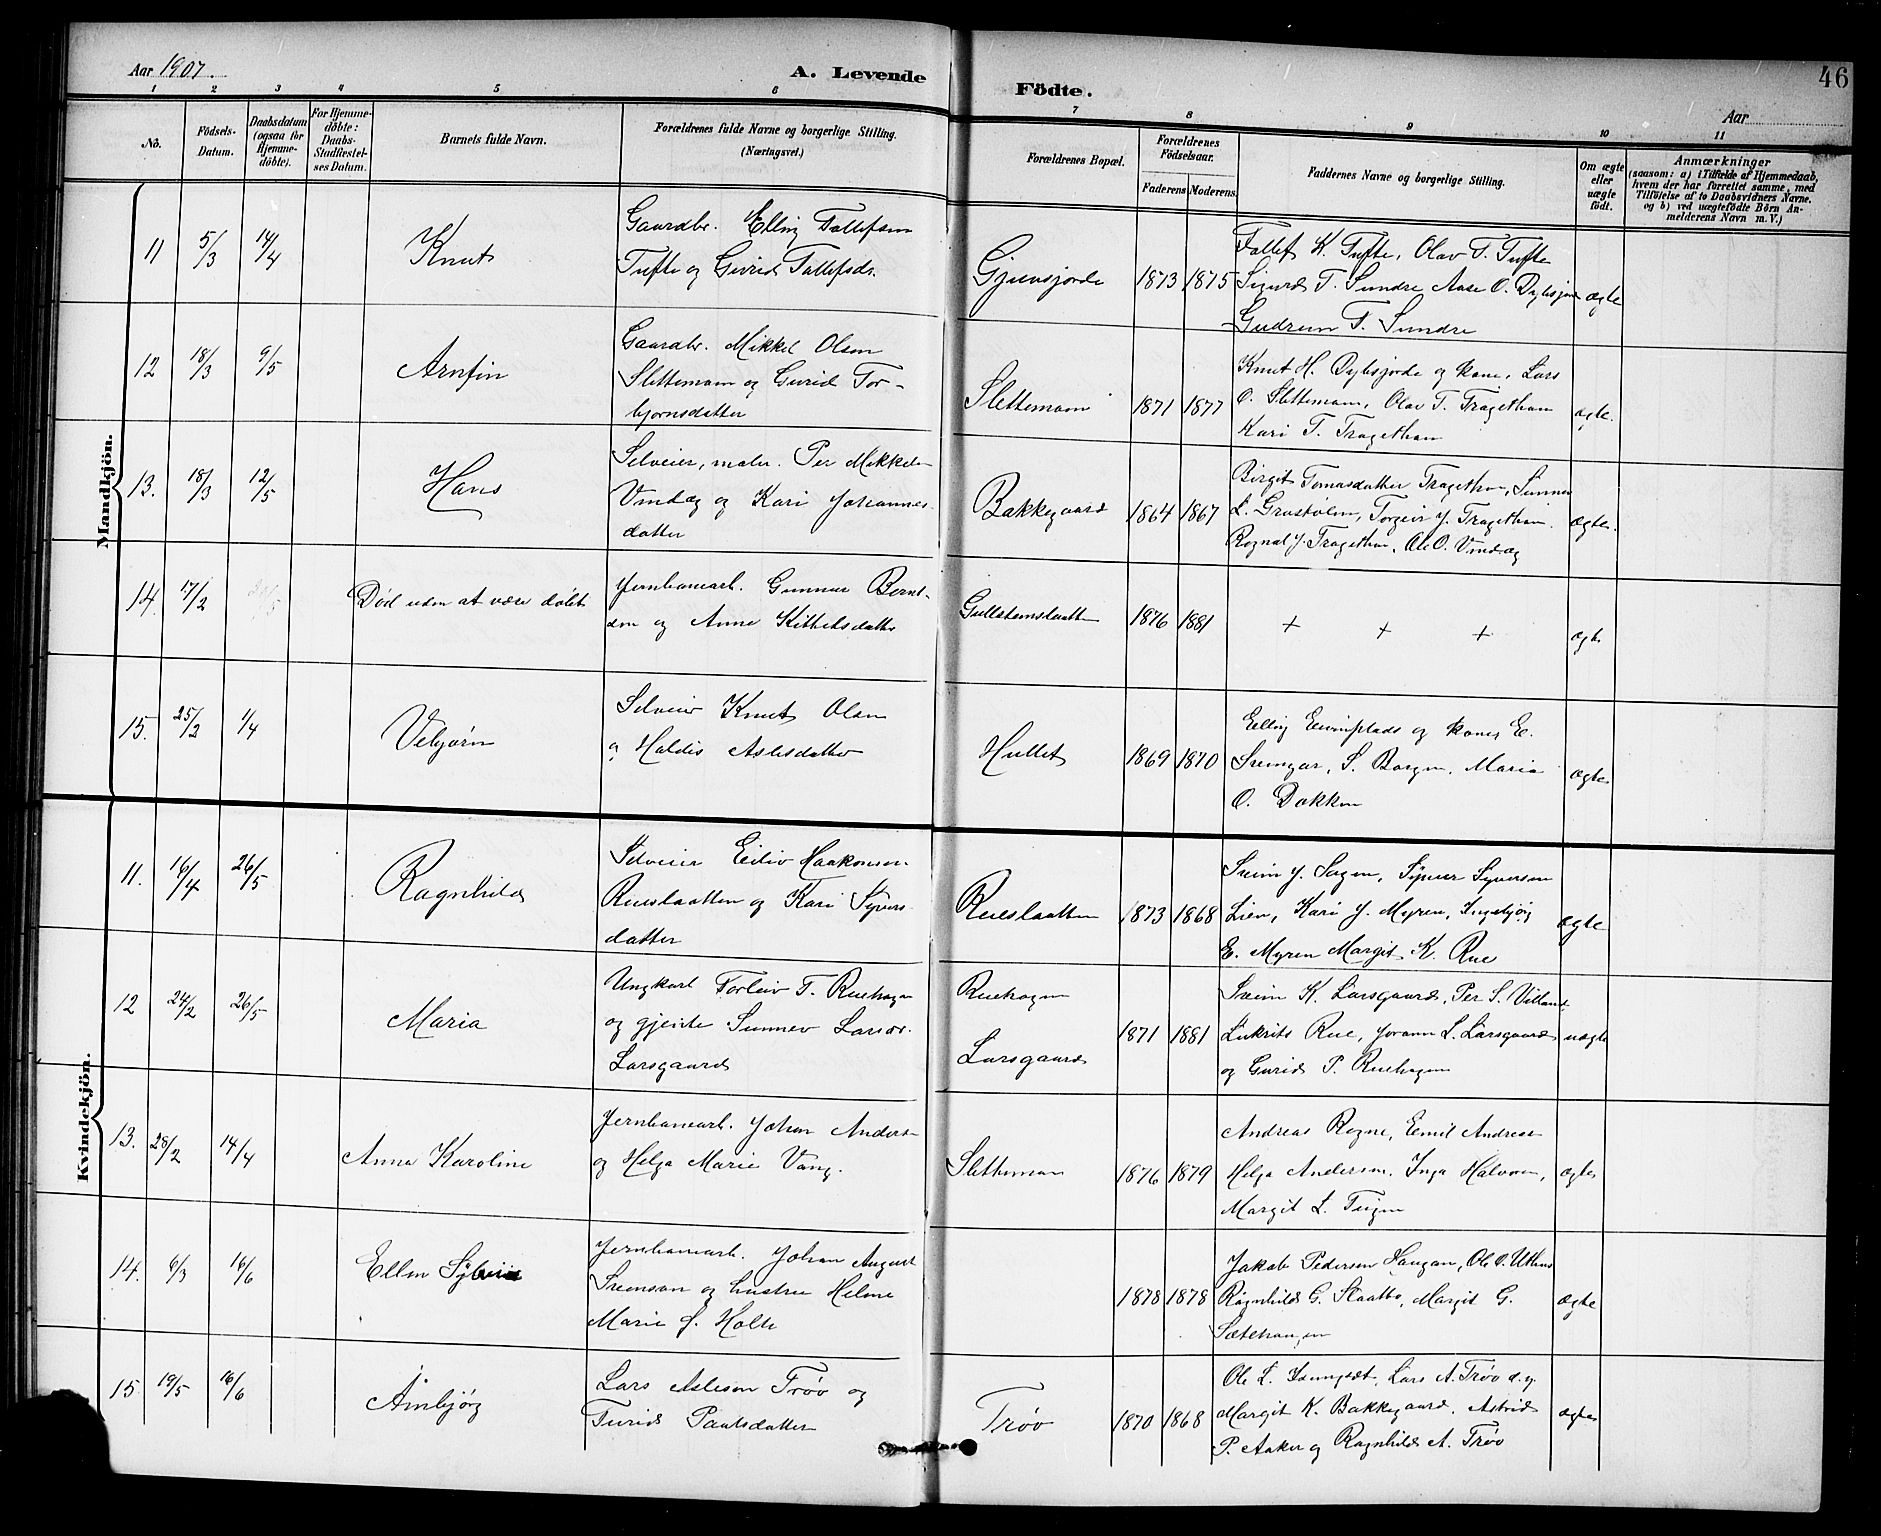 Aar 1907.
A. Levende
Födte.
46
Aar
1 2 3 4 5 6 7 8 9 10 11
No.
Födsels-Datum.
Daabsdatum (ogsaa for Hjemme-döbte).
For Hjemme-döbte: Daabs-Stadfæstel-ses Datum.
Barnets fulde Navn.
Forældrenes fulde Navne og borgerlige Stilling. (Næringsvei.)
Forældrenes Bopæl.
Forældrenes Födselsaar.
Faderens Moderens
Faddernes Navne og borgerlige Stilling.
Om ægte eller uægte födt.
Anmærkninger
(saasom: a) i Tilfælde af Hjemmedaab, hvem der har forrettet samme, med Tilföielse af to Daabsvidners Navne. og b) ved uægtefödte Börn An-melderens Navn m. V.)
Mandkjön.
11 5/3 14/4 Knut
Gaardbr. Elling Tollefsen
Tufte og Gurid Tollefsdr.
1873 1875
Tollef K. Tufte, Olav T. Tufte
Sigurd T. Sundre Aase O. Dylsjord
Gudrun T. Sundre
ægte
12 18/3 9/5 Arnfin
Gaardbr. Mikkel Olsen
Slettemoen og Gurid Tor-
bjornsdatter
Slettemoen 1871 1877
Knut H. Dylsjorde og kone, Lars
O. Slettemoen, Olav T. Tragethon
Kari T. Tragethon
ægte.
13. 18/3 12/5 Hans
Selveier, maler. Per Mikkels-
Vindeg og Kari Johannes-
datter
Bakkegaard 1864 1867
Birgit Tomasdatter Tragethon,
L. Grostølen, Torgeir J. Tragethon.
Ragnal J. Tragethon, Ole O. Vindeg
ægte.
14. 17/2
Död uden at være döbt
Jernbanearb. Gunnar Bernt-
sen og Anne Kittelsdatter
1876 1881
+ + +
ægte
15. 25/2 1/4 Vebjørn
Selveier Knut Olsen
og Haldis Aslesdatter
Hullet 1869 1870
og kone, E.
S. Bergen, Maria
O. Dokken
ægte
Kvindekjön.
11. 16/4 26/5 Ragnhild
Selveier Eiliv Haakonsen
Rueslaatten og Kari Syvers-
datter
Rueslaatten 1873 1868
Svein J. Sagen, Syver Syversen
Lien, Kari J. Myren, Ingebjørg
E. Myren Margit K. Rue
ægte
12 24/2 26/5 Maria
Ungkarl Torleiv T. Ruehagen
og gjente Sunnev Larsdr.
Larsgaard
Ruehagen
Larsgaard
1871 1881
Svein K. Larsgaard, Per S. Villand,
Rue, Joramn L. Larsgaard
og Gurid P. Ruehagen
uægte
13. 28/2 14/4 Anna Karoline
Jernbanearb. Johan Anders-
og Helga Marie Vang.
Slettemoen 1876 1879
Andreas Rogne, Emil Andresen
Helga Andersen, Inga Halvorsen,
Margit L. Tuigen
ægte
14. 6/3 16/6 Ellen Sylvia
Jernbanearb. Johan August
Svenson og hustru Helene
Marie J. Holte
1878 1878
Jakob Pedersen Haugan, Ole O.
Ragnhild G. Slaatto, Margit G.
Sætehaugen
ægte
15 19/5 16/6 Ambjørg
Lars Aslesen Trøo og
Turid Paalsdatter
Trøo 1870 1868
Ole L. Lars A. Trøo d.y.
Margit K. Bakkegaard, Astrid
P. Aaker og Ragnhild A. Trøo
ægte